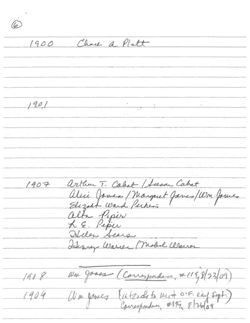 6
1900 Chas. A Platt
1901
1907 Arthur T. Cabot / Susan Cabot
Alice James / Margaret James / Wm James
Elizabeth Ward Perkins
Alta Piper
L E. Piper
Helen Sears
Fiske Warren / Mabel Warren
1908 Wm James (Correspondence, #119, 8/23/09)
1909 Wm James (intends to meet O.F. early Sept.)
Correspondence, 8/24/09